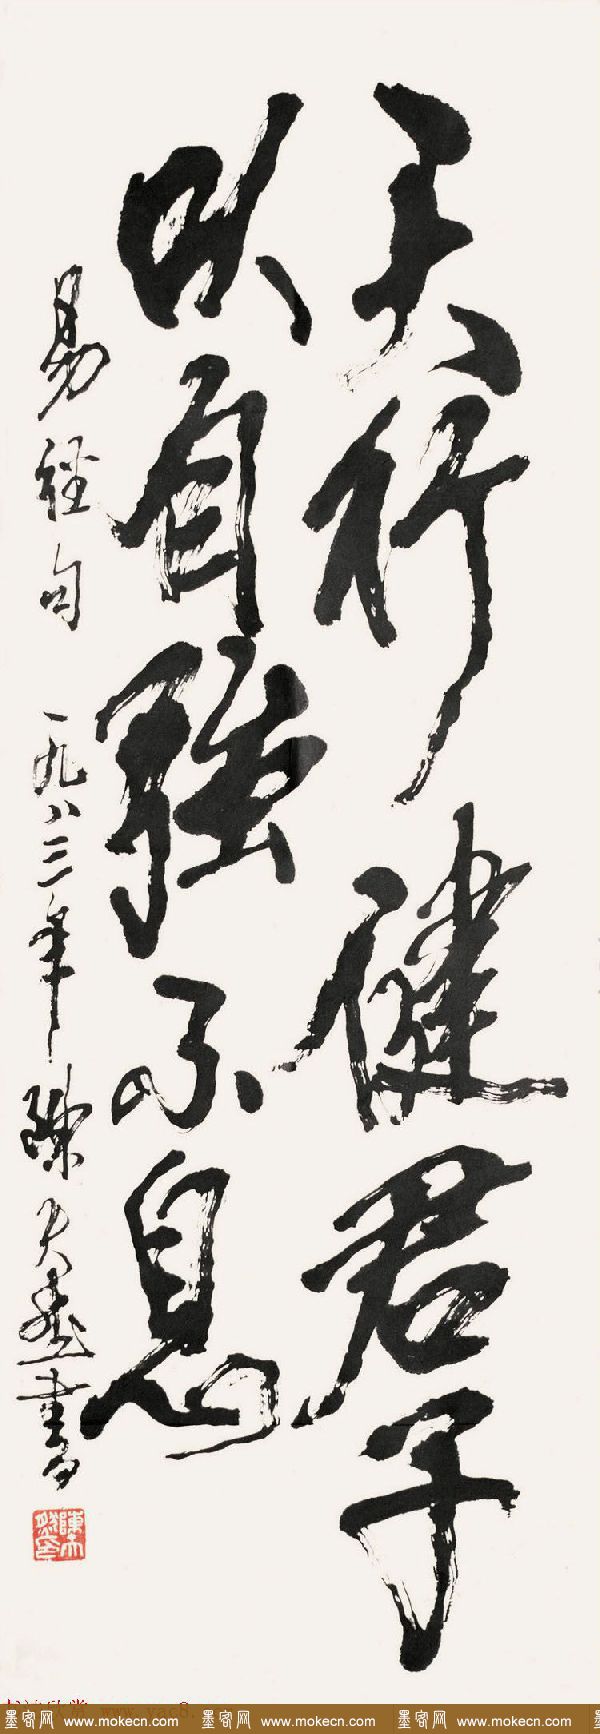 天行健君子
以自強不息
易經句 一九八三年 陳天然書
陳天然印
www.yac8.
墨客网 www.mokecn.com 墨客网 www.mokecn.com 墨客网 www.mokecn.com